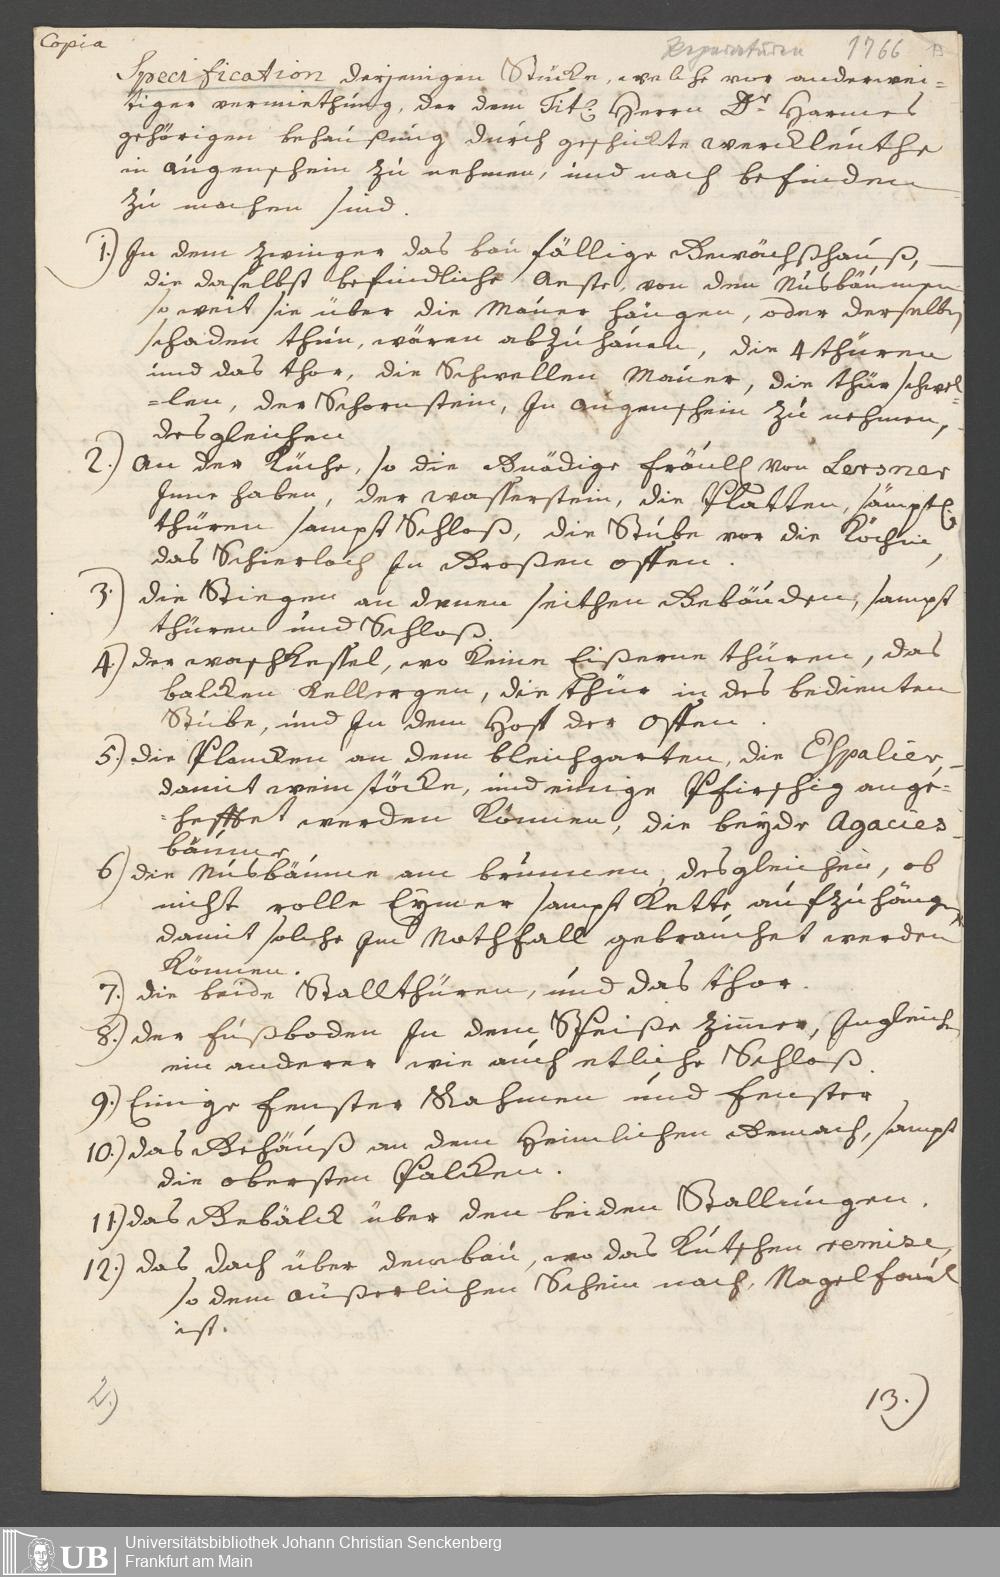 Copia
Reparaturen 1766 B
Specification derjenigen Stücke, welche vor anderwei=
tiger vermiethung, der dem Tit. Herrn Dr Harmes
gehörigen behaußung durch geschickte werckleuthe
in augenschein zu nehmen, und nach befinden
zu machen sind.
1.) In dem Zwinger das baufällige Gewächßhauß,
die daselbst befindliche Aeste, von den Nusbäumen
so weit sie über die Mauer hängen, oder derselben
schaden thun, wären abzuhauen, die 4 thüren
und das thor, die Schwellen Mauer, die thür schwel=
=len, der Schornstein, In augenschein zu nehmen,
desgleichen
2.) An der Küche, so die Gnädige fräul. von Lersner
Inne haben, der wasserstein, die Platten, sämptl.
thüren sampt Schloß, die Stube vor die Köchin,
das Schierloch In Großen offen.
3.) die Stiegen an denen seithen Gebäuden, sampt
thüren und Schloß.
4.) der waschkessel, wo keine Eißerne thüren, das
balcken Kellergen, die thür in des bedienten
Stube, und In dem Hoff der offen.
5.) die Plancken an dem bleichgarten, die Espalier,
damit weinstöcke, und einige Pfirschig ange=
=hefftet werden können, die beyde Agacies
bäume
6.) die Nusbäume am brunnen, desgleichen, ob
nicht rolle Eymer sampt Kette aufzuhängen
damit solche Im Nothfall gebrauchet werden
können.
7.) die beide Stallthüren, und das thor.
8.) der fußboden In dem Speiße Zimmer, Ingleichen
ein anderer wie auch etliche Schloß.
9.) Einige fenster Rahmen und fenster
10.) das Gehäuß an dem Heimlichen Gemach, sampt
die obersten Balcken.
11.) das Gebälck über den beiden Stallungen.
12.) das dach über dem bau, wo das Kutschen remise,
so dem äußerlichen Schein nach, Nagelfaul
ist.
2.) 13.)
UB Universitätsbibliothek Johann Christian Senckenberg
Frankfurt am Main